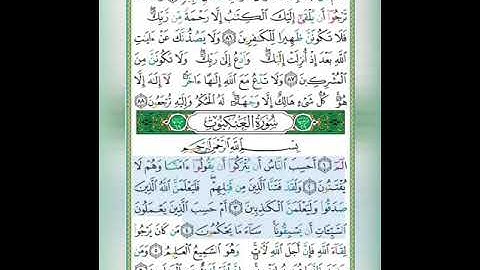 تَرْجُوٓا۟ أَن يُلْقَىٰٓ إِلَيْكَ ٱلْكِتَٰبُ إِلَّا رَحْمَةً مِّن رَّبِّكَ
فَلَا تَكُونَنَّ ظَهِيرًا لِّلْكَٰفِرِينَ ٨٦ وَلَا يَصُدُّنَّكَ عَنْ ءَايَٰتِ
ٱللَّهِ بَعْدَ إِذْ أُنزِلَتْ إِلَيْكَ وَٱدْعُ إِلَىٰ رَبِّكَ وَلَا تَكُونَنَّ مِنَ
ٱلْمُشْرِكِينَ ٨٧ وَلَا تَدْعُ مَعَ ٱللَّهِ إِلَٰهًا ءَاخَرَ لَآ إِلَٰهَ إِلَّا
هُوَ كُلُّ شَىْءٍ هَالِكٌ إِلَّا وَجْهَهُۥ لَهُ ٱلْحُكْمُ وَإِلَيْهِ تُرْجَعُونَ ٨٨
سُورَةُ ٱلْعَنكَبُوتِ
بِسْمِ ٱللَّهِ ٱلرَّحْمَٰنِ ٱلرَّحِيمِ
الٓمٓ ١ أَحَسِبَ ٱلنَّاسُ أَن يُتْرَكُوٓا۟ أَن يَقُولُوٓا۟ ءَامَنَّا وَهُمْ لَا
يُفْتَنُونَ ٢ وَلَقَدْ فَتَنَّا ٱلَّذِينَ مِن قَبْلِهِمْ فَلَيَعْلَمَنَّ ٱللَّهُ ٱلَّذِينَ
صَدَقُوا۟ وَلَيَعْلَمَنَّ ٱلْكَٰذِبِينَ ٣ أَمْ حَسِبَ ٱلَّذِينَ يَعْمَلُونَ
ٱلسَّيِّـَٔاتِ أَن يَسْبِقُونَا سَآءَ مَا يَحْكُمُونَ ٤ مَن كَانَ يَرْجُوا۟
لِقَآءَ ٱللَّهِ فَإِنَّ أَجَلَ ٱللَّهِ لَـَٔاتٍ وَهُوَ ٱلسَّمِيعُ ٱلْعَلِيمُ ٥ وَمَن